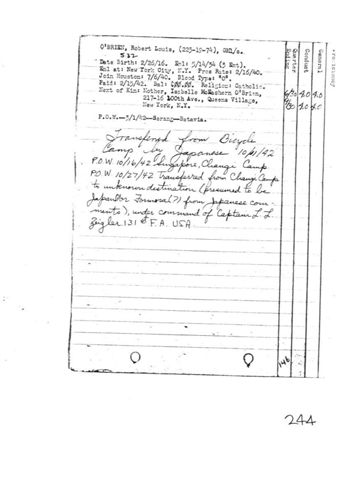 O'BRIEN, Robert Louis, (223-19-74), GM1/c.
Date Birth: 2/26/16. Enl: 5/14/34 (3 Ext).
Enl at: New York City, N.Y. Pres Rate: 2/16/40.
Join Houston: 7/6/40. Blood Type: "O".
Paid: 2/15/42. Bal: Religion: Catholic.
Next of Kin: Mother, Isabelle O'Brien,
217-16 100th Ave., Queens Village,
New York, N.Y.
P.O.W.--3/1/42--Serang--Batavia.
Transfered from Bicycle
Camp by Japanese 10/ /42
P.O.W 10/16/42 Singapore, Change Camp
P.O.W 10/27/42 Transfered from Change Camp
to unknown destination (presumed to be
Japan or Formosa (?) from Japanese com-
ments), under command of Captain L. L.
Zeigler 131st F.A. USA
General
Conduct
Quarter
Ending
4.0 4.0
4.0 4.0
146
244